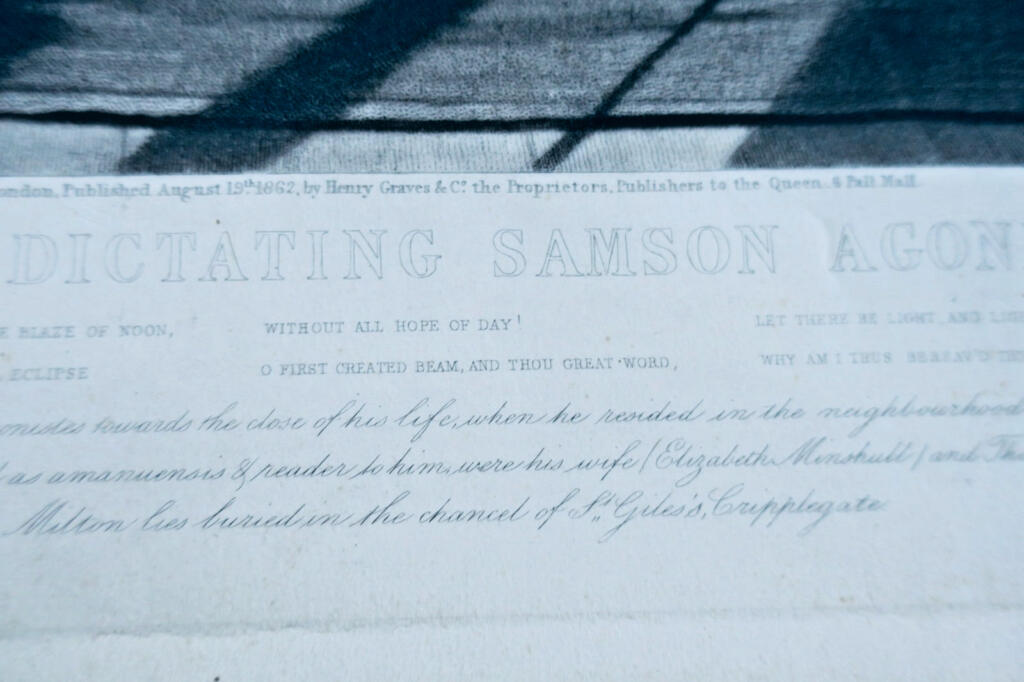 London, Published August 19th 1862, by Henry Graves & Co. the Proprietors, Publishers to the Queen, 6 Pall Mall
DICTATING SAMSON AGON
E BLAZE OF NOON, WITHOUT ALL HOPE OF DAY! LET THERE BE LIGHT, AND
ECLIPSE O FIRST CREATED BEAM, AND THOU GREAT WORD, WHY AM I THUS BEREAV'D
onistes towards the close of his life, when he resided in the neighbourhood
as amanuensis & reader to him, were his wife (Elizabeth Minshull) and
Milton lies buried in the chancel of St. Giles's, Cripplegate